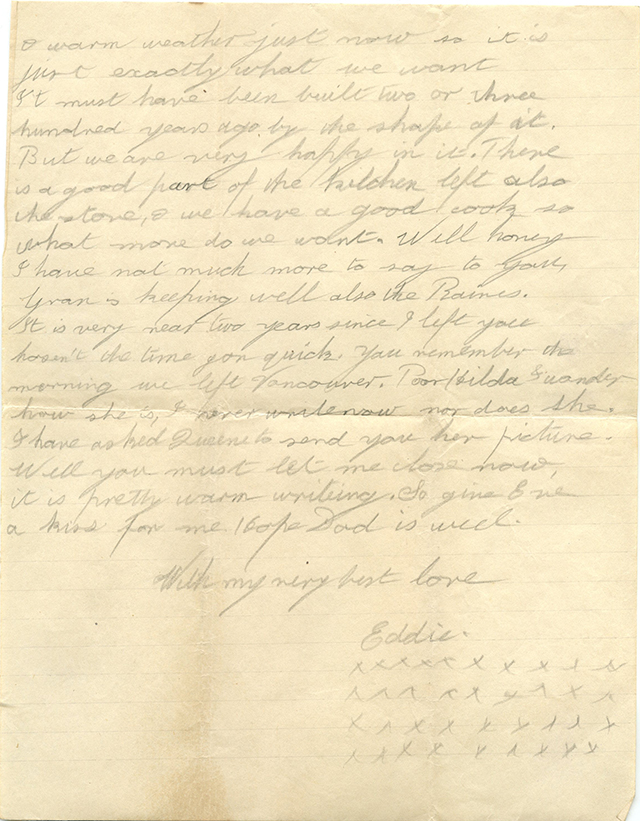 & warm weather just now so it is
just exactly what we want
I't must have been built two or three
hundred years ago, by the shape of it.
But we are very happy in it. There
is a good part of the kitchen left also
the stove, & we have a good cook so
what more do we want. Well honey
I have not much more to say to you,
Gran is keeping well also the Raines.
It is very near two years since I left you
hasen't the time gon quick. You remember the
morning we left Vancouver. Poor Hilda I wonder
how she is, I never write now nor does she.
I have asked Queene to send you her picture.
Well you must let me close now,
it is pretty warm writing. So give Eve
a kiss for me Hope Dad is well.
With my very best love
Eddie.
x x x x x x x x x x x
x x x x x x x x x
x x x x x x x x x
x x x x x x x x x